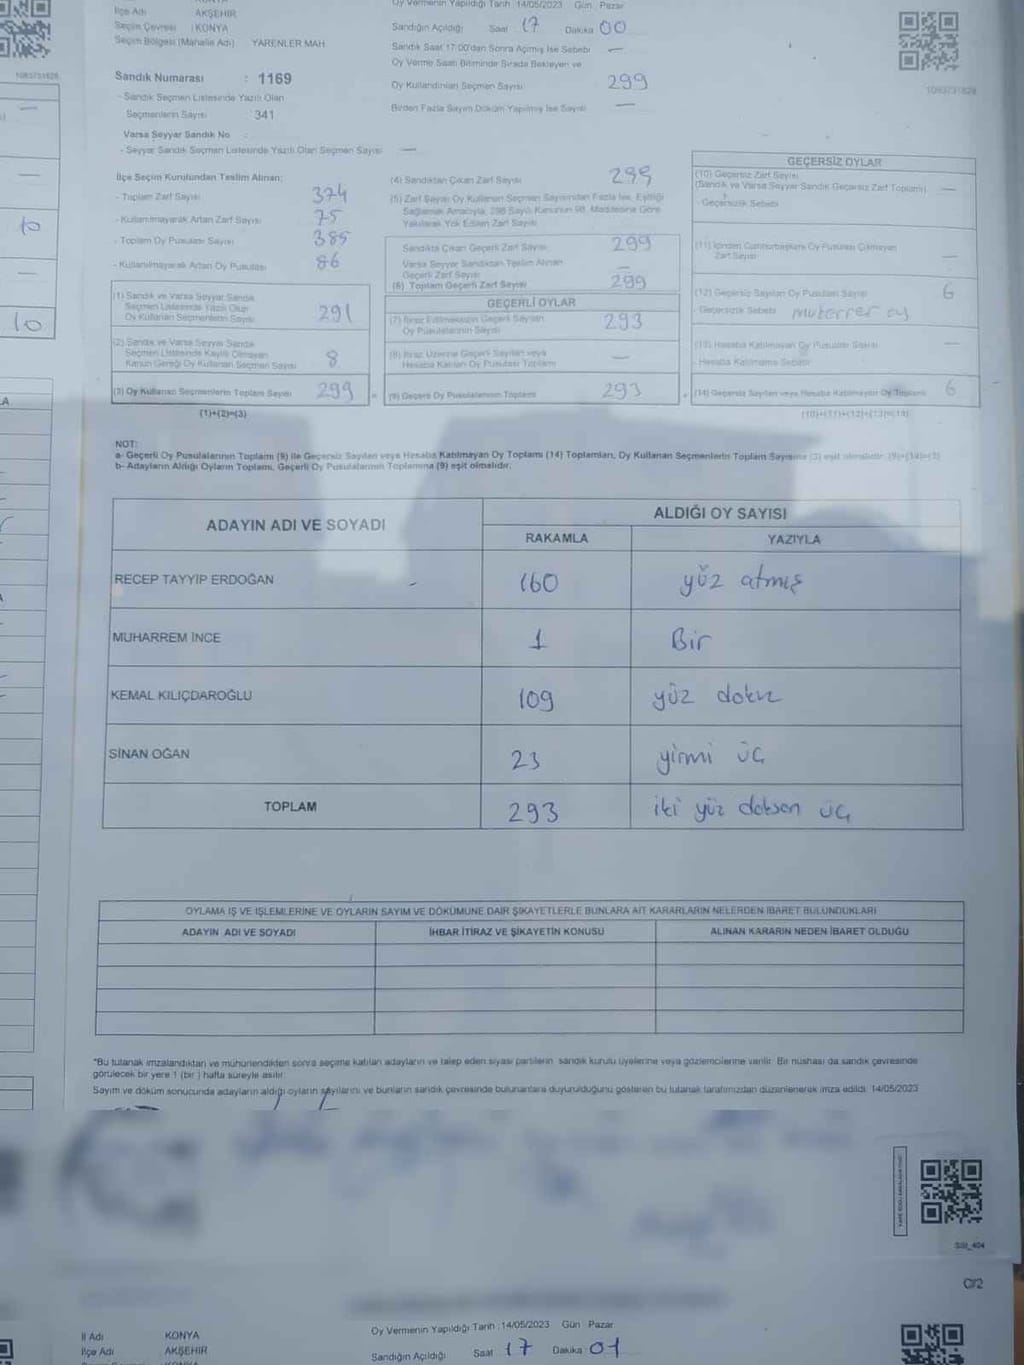 İlçe Adı AKŞEHİR
Seçim Çevresi : KONYA
Seçim Bölgesi (Mahalle Adı) YARENLER MAH
Sandık Numarası : 1169
- Sandık Seçmen Listesinde Yazılı Olan
Seçmenlerin Sayısı : 341
Varsa Seyyar Sandık No :
- Seyyar Sandık Seçmen Listesinde Yazılı Olan Seçmen Sayısı —
Oy Vermenin Yapıldığı Tarih :14/05/2023 Gün : Pazar
Sandığın Açıldığı Saat 17 Dakika 00
Sandık Saat 17:00'dan Sonra Açılmış İse Sebebi —
Oy Verme Saati Bitiminde Sırada Bekleyen ve
Oy Kullandırılan Seçmen Sayısı 299
Birden Fazla Sayım Döküm Yapılmış İse Sayısı —
1093731828
İlçe Seçim Kurulundan Teslim Alınan:
- Toplam Zarf Sayısı 374
- Kullanılmayarak Artan Zarf Sayısı 75
- Toplam Oy Pusulası Sayısı 385
- Kullanılmayarak Artan Oy Pusulası 86
(1) Sandık ve Varsa Seyyar Sandık
Seçmen Listesinde Yazılı Olup
Oy Kullanan Seçmenlerin Sayısı 291
(2) Sandık ve Varsa Seyyar Sandık
Seçmen Listesinde Kayıtlı Olmayan
Kanun Gereği Oy Kullanan Seçmen Sayısı 8
(3) Oy Kullanan Seçmenlerin Toplam Sayısı 299
(1)+(2)=(3)
(4) Sandıktan Çıkan Zarf Sayısı 299
(5) Zarf Sayısı Oy Kullanan Seçmen Sayısından Fazla İse, Eşitliği
Sağlamak Amacıyla, 298 Sayılı Kanunun 98. Maddesine Göre
Yakılarak Yok Edilen Zarf Sayısı
Sandıkta Çıkan Geçerli Zarf Sayısı 299
Varsa Seyyar Sandıktan Teslim Alınan
Geçerli Zarf Sayısı —
(6) Toplam Geçerli Zarf Sayısı 299
GEÇERLİ OYLAR
(7) İtiraz Edilmeksizin Geçerli Sayılan
Oy Pusulalarının Sayısı 293
(8) İtiraz Üzerine Geçerli Sayılan veya
Hesaba Katılan Oy Pusulası Toplamı —
(9) Geçerli Oy Pusulalarının Toplamı 293
GEÇERSİZ OYLAR
(10) Geçersiz Zarf Sayısı
(Sandık ve Varsa Seyyar Sandık Geçersiz Zarf Toplamı) —
- Geçersizlik Sebebi
(11) İçinden Cumhurbaşkanı Oy Pusulası Çıkmayan
Zarf Sayısı —
(12) Geçersiz Sayılan Oy Pusulası Sayısı 6
- Geçersizlik Sebebi mükerrer oy
(13) Hesaba Katılmayan Oy Pusulası Sayısı —
- Hesaba Katılmama Sebebi
(14) Geçersiz Sayılan veya Hesaba Katılmayan Oy Toplamı 6
(10)+(11)+(12)+(13)=(14)
NOT:
a- Geçerli Oy Pusulalarının Toplamı (9) ile Geçersiz Sayılan veya Hesaba Katılmayan Oy Toplamı (14) Toplamları, Oy Kullanan Seçmenlerin Toplam Sayısına (3) eşit olmalıdır. (9)+(14)=(3)
b- Adayların Aldığı Oyların Toplamı, Geçerli Oy Pusulalarının Toplamına (9) eşit olmalıdır.
ADAYIN ADI VE SOYADI
ALDIĞI OY SAYISI
RAKAMLA YAZIYLA
RECEP TAYYİP ERDOĞAN 160 yüz atmış
MUHARREM İNCE 1 Bir
KEMAL KILIÇDAROĞLU 109 yüz dokuz
SİNAN OĞAN 23 yirmi üç
TOPLAM 293 iki yüz doksan üç
OYLAMA İŞ VE İŞLEMLERİNE VE OYLARIN SAYIM VE DÖKÜMÜNE DAİR ŞİKAYETLERLE BUNLARA AİT KARARLARIN NELERDEN İBARET BULUNDUKLARI
ADAYIN ADI VE SOYADI İHBAR İTİRAZ VE ŞİKAYETİN KONUSU ALINAN KARARIN NEDEN İBARET OLDUĞU
"Bu tutanak imzalandıktan ve mühürlendikten sonra seçime katılan adayların ve talep eden siyasi partilerin sandık kurulu üyelerine veya gözlemcilerine verilir. Bir nüshası da sandık çevresinde
görülecek bir yere 1 (bir) hafta süreyle asılır.
Sayım ve döküm sonucunda adayların aldığı oyların sayılarını ve bunların sandık çevresinde bulunanlara duyurulduğunu gösteren bu tutanak tarafımızdan düzenlenerek imza edildi. 14/05/2023
10
10
A
SSI_404
C/2
İl Adı KONYA
İlçe Adı AKŞEHİR
Oy Vermenin Yapıldığı Tarih :14/05/2023 Gün : Pazar
Sandığın Açıldığı Saat 17 Dakika 01